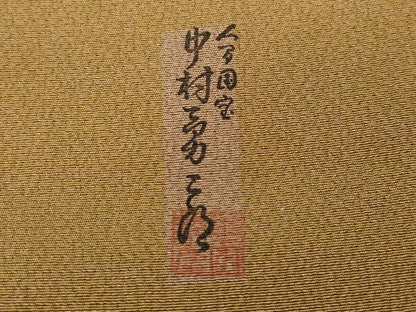 人間国宝
中村勇二郎